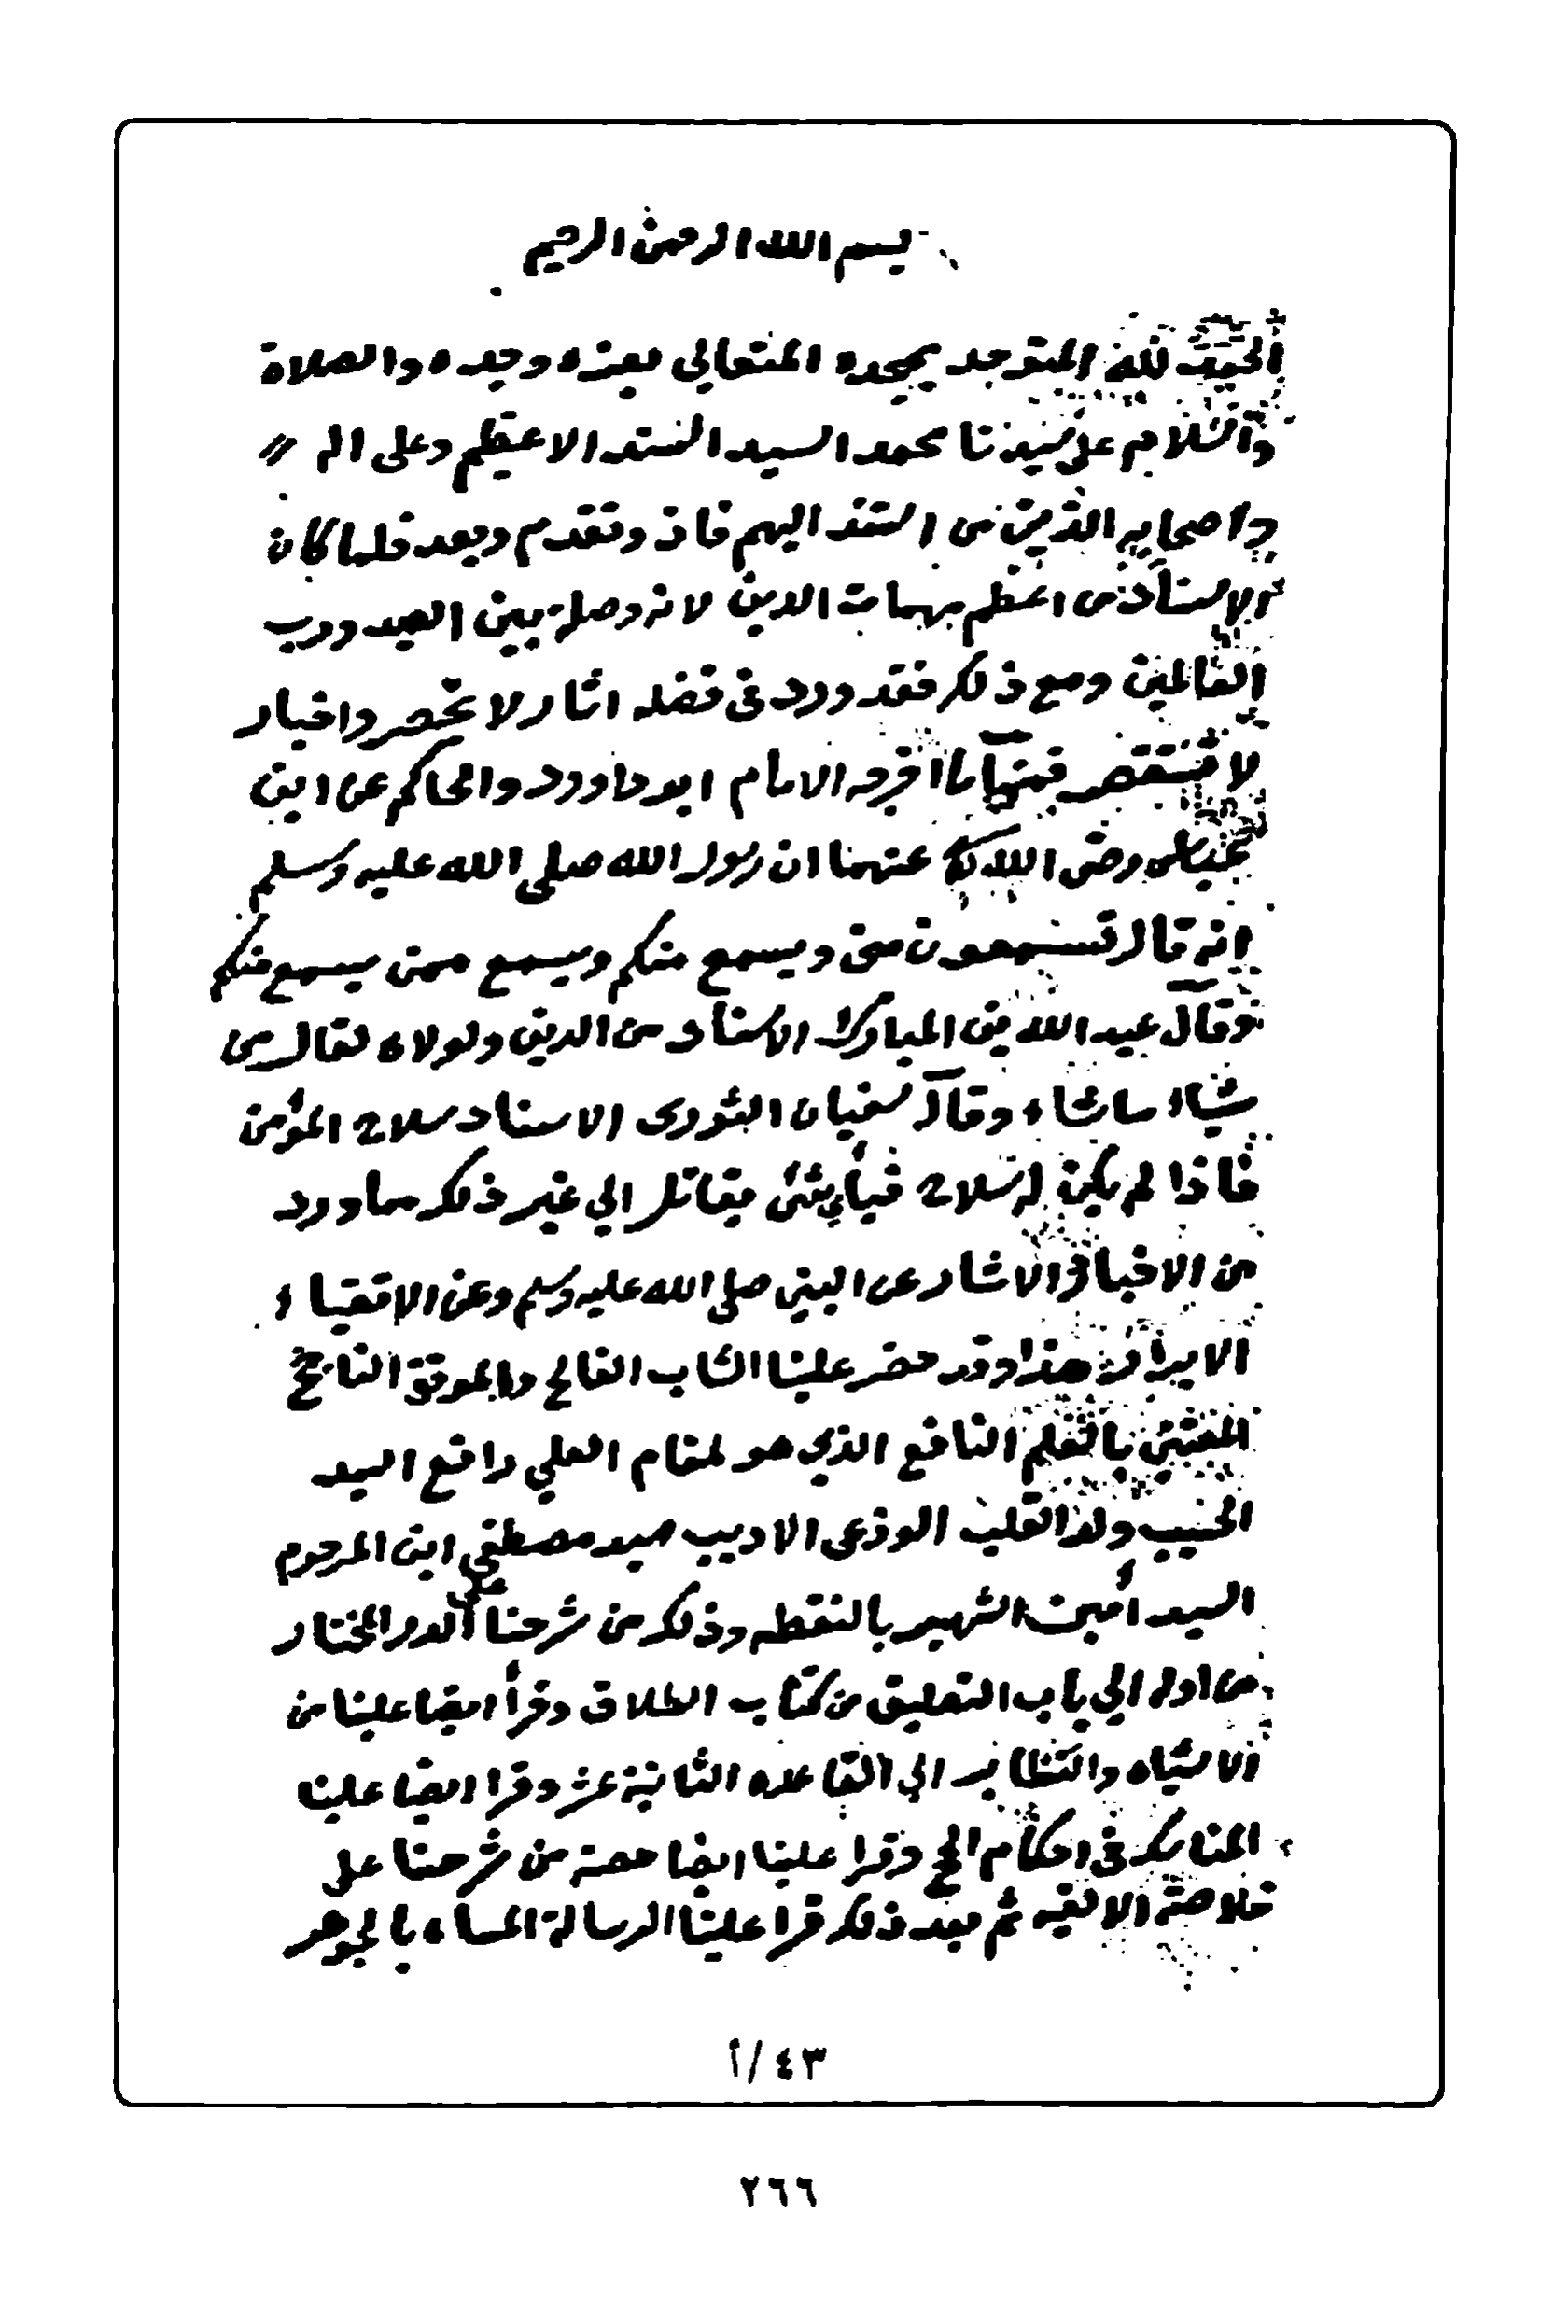 بسم الله الرحمن الرحيم
الحمد لله المتوحد بمجده المتعالي بعزه وجده والصلاة
والسلام على سيدنا محمد السيد السند الاعظم وعلى اله
واصحابه الذين من استند اليهم فاز وتقدم وبعد فلما كان
الاسناد من اعظم مهمات الدين لانه وصلة بين العبد ورب
العالمين ومع ذلك فقد ورد في فضله اثار لا تحصر واخبار
لا تستقصر فمنها ما اخرجه الامام ابو داوود والحاكم عن ابن
عباس رضى الله عنهما ان رسول الله صلى الله عليه وسلم
انه قال تسمعون منى ويسمع منكم ويسمع ممن يسمع منكم
وقال عبد الله بن المبارك الاسناد من الدين ولولاه لقال من
شاء ما شاء وقال سفيان الثورى الاسناد سلاح المؤمن
فاذا لم يكن له سلاح فبأي شئ يقاتل الي غير ذلك مما ورد
من الاخبار والاثار عن النبي صلى الله عليه وسلم وعن الاتقياء
الابرار هذا وقد حضر علينا الشاب الفالح والموفق الناجح
المعتني بالعلم النافع الذي هو لمقام العلي رافع السيد
الحسيب ولد القلب الوذعى الاديب سيد مصطفي ابن المرحوم
السيد أمين الشهير بالنقطه وذلك من شرحنا على الدر المختار
من اوله الي باب التعليق من كتاب الطلاق وقرأ ايضا علينا من
الاشباه والنظاير الي القاعده الثانية عشر وقرا ايضا علينا
المناسك في احكام الحج وقرا علينا ايضا حصة من شرحنا على
خلاصة الالفيه ثم بعد ذلك قرا علينا الرسالة المسماه بالجوهر
٤٣/أ
٢٦٦